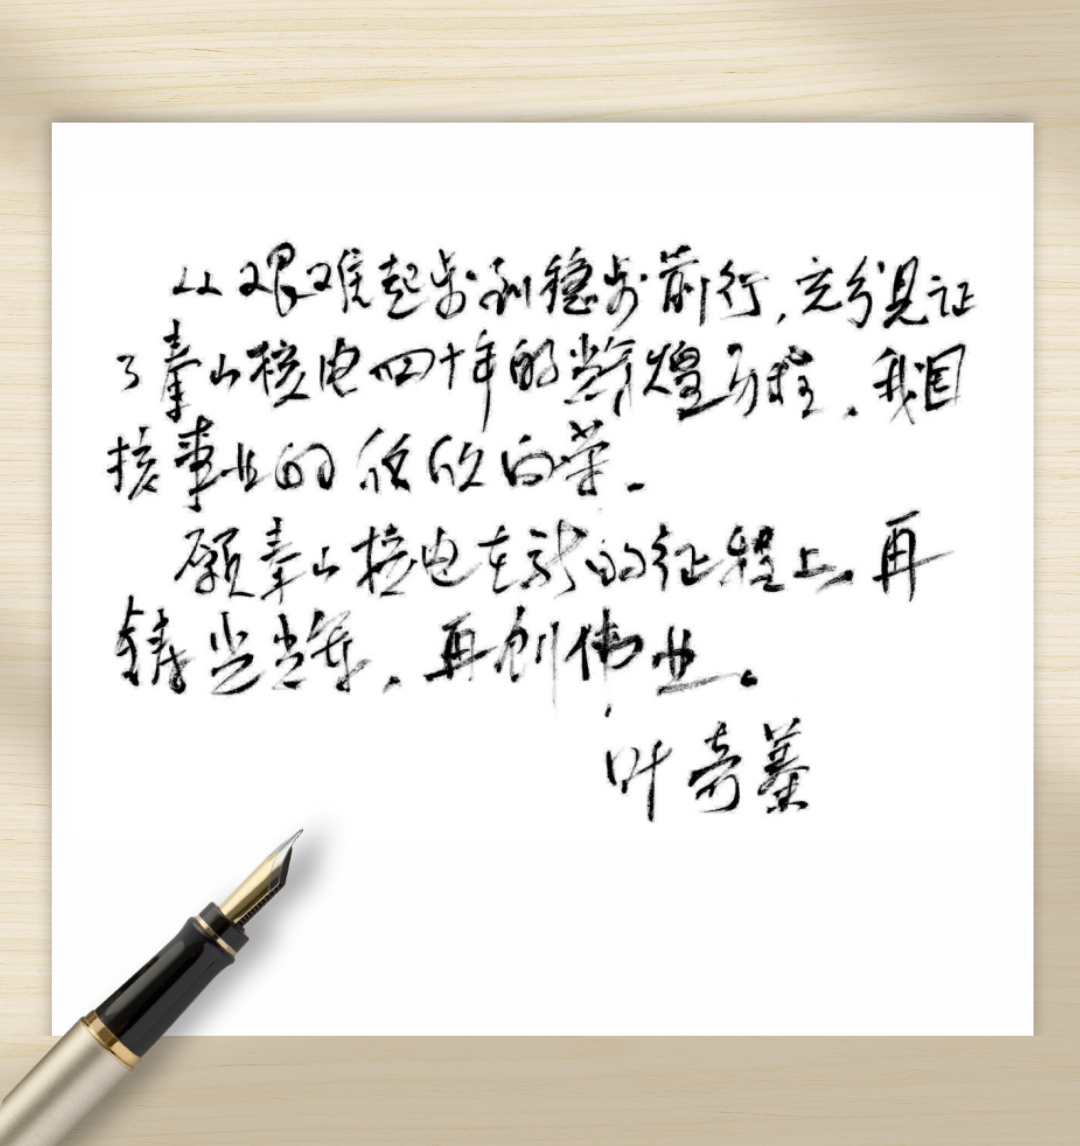 从艰难起步到稳步前行,充分见证
了秦山核电四十年的辉煌历程.我国
核事业的欣欣向荣.
愿秦山核电在新的征程上.再
铸光辉.再创伟业。
叶奇蓁